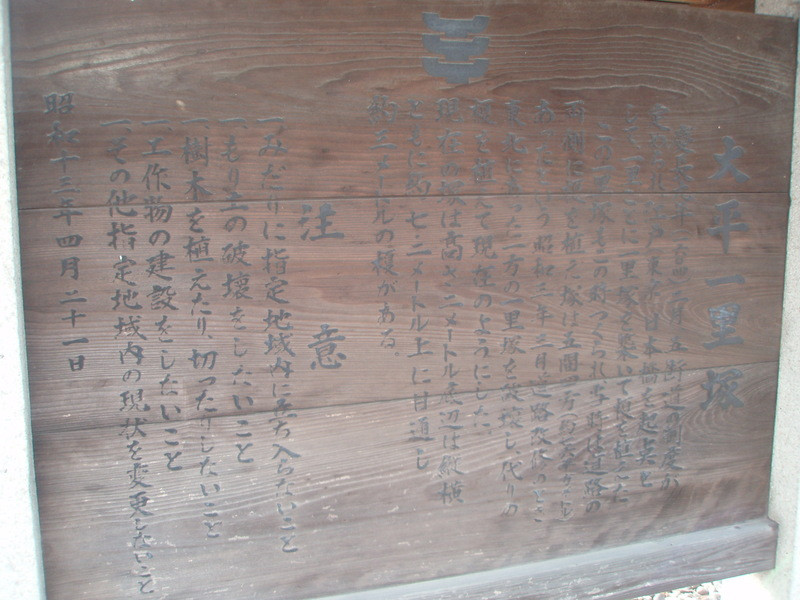 大平一里塚
慶長九年(一六〇四)二月五街道の制度が
定められ江戸(東京)日本橋を起点と
して一里ごとに一里塚を築いて榎を植えた
この一里塚もこの時つくられ当時は道路の
両側に榎を植え塚は五間四方
あったという昭和三年三月道路改修のとき
東北にあった一方の一里塚を
榎を植えて現在のようにした。
現在の塚は高さ二メートル底辺は縦横
ともに約七・三メートル上に目通し
約三メートルの榎がある。
注意
一、みだりに指定地域内に立ち入らないこと
一、もり土の破壊をしないこと
一、樹木を植えたり、切ったりしないこと
一、工作物の建設をしないこと
一、その他指定地域内の現状を変更しないこと
昭和十三年四月二十一日